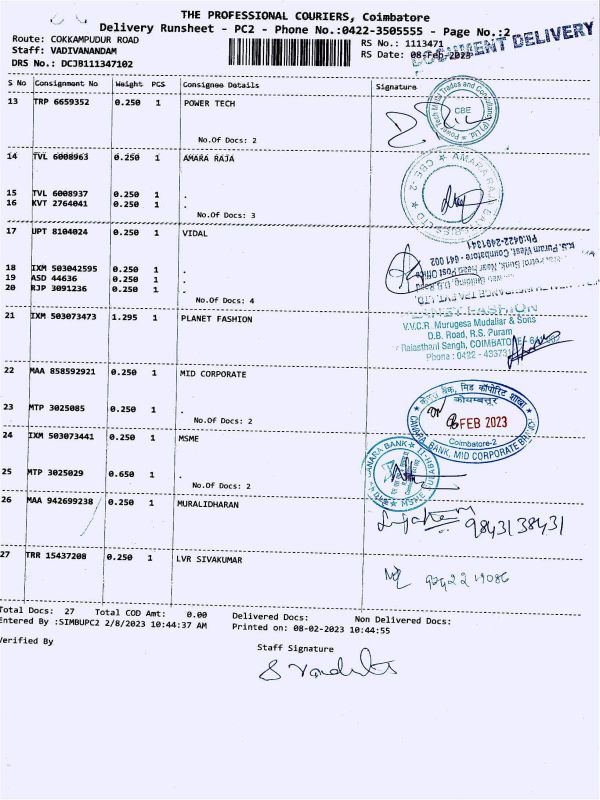 THE PROFESSIONAL COURIERS, Coimbatore
Delivery Runsheet - PC2 - Phone No.:0422-3505555 - Page No.:2
DOCUMENT DELIVERY
Route: COKKAMPUDUR ROAD
Staff: VADIVANANDAM
DRS No.: DCJB111347102
RS No.: 1113471
RS Date: 08-Feb-2023
S No Consignment No Weight PCS Consignee Details Signature
13 TRP 6659352 0.250 1 POWER TECH
No.Of Docs: 2
CBE
14 TVL 6008963 0.250 1 AMARA RAJA
15 TVL 6008937 0.250 1 .
16 KVT 2764041 0.250 1 .
No.Of Docs: 3
AMARA RAJA
CBE-2
17 UPT 8104024 0.250 1 VIDAL
18 IXM 503042595 0.250 1 .
19 ASD 44636 0.250 1 .
20 RJP 3091236 0.250 1 .
No.Of Docs: 4
Near Head Post Office
R.S. Puram West, Coimbatore - 641 002
Ph:0422-2491341
21 IXM 503073473 1.295 1 PLANET FASHION
PLANET FASHION
V.V.C.R. Murugesa Mudaliar & Sons
D.B. Road, R.S. Puram,
Rajasthani Sangh, COIMBATORE - 641 002
Phone : 0422 -
22 MAA 858592921 0.250 1 MID CORPORATE
23 MTP 3025085 0.250 1 .
No.Of Docs: 2
केनरा बैंक, मिड कॉर्पोरेट शाखा
कोयम्बत्तूर
FEB 2023
Coimbatore-2
CANARA BANK, MID CORPORATE BRANCH
24 IXM 503073441 0.250 1 MSME
25 MTP 3025029 0.650 1 .
No.Of Docs: 2
CANARA BANK
MSME
26 MAA 942699238 0.250 1 MURALIDHARAN
9843138431
27 TRR 15437208 0.250 1 LVR SIVAKUMAR
Total Docs: 27 Total COD Amt: 0.00 Delivered Docs: Non Delivered Docs:
Entered By :SIMBUPC2 2/8/2023 10:44:37 AM Printed on: 08-02-2023 10:44:55
Verified By
Staff Signature